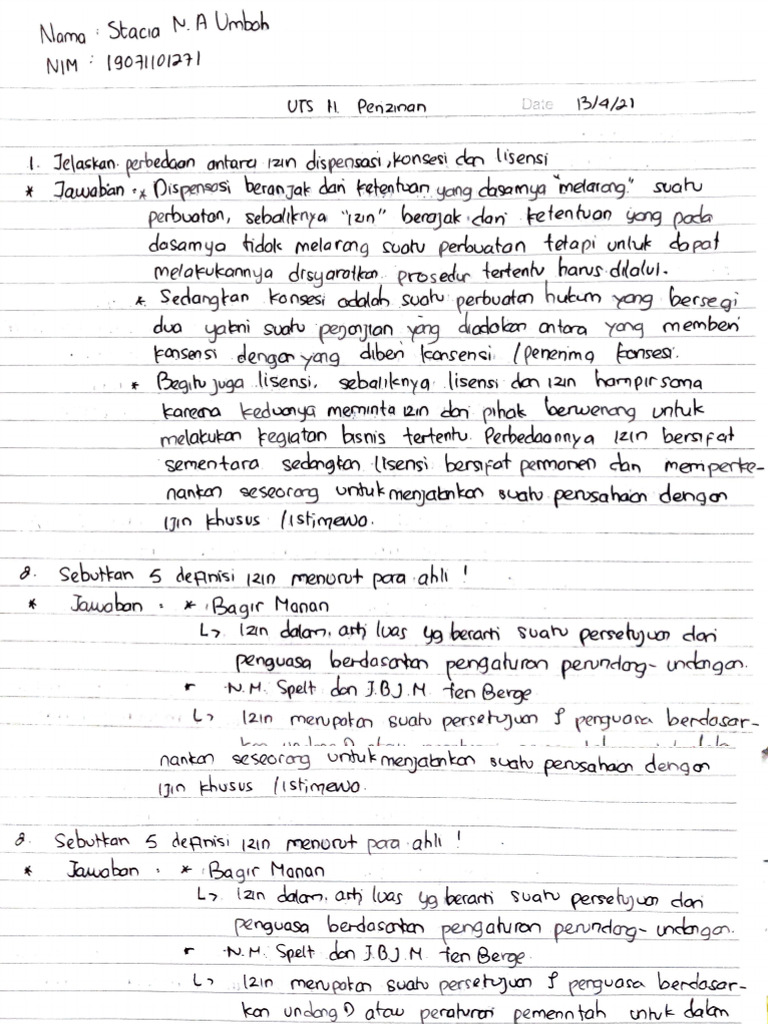 Nama : Stacia N. A Umboh
NIM : 19071101271
UTS H. Penzinan Date 13/4/21
1. Jelaskan perbedaan antara izin dispensasi, konsesi dan lisensi
* Jawaban : * Dispensasi beranjak dari ketentuan yang dasarnya "melarang" suatu
perbuatan, sebaliknya "izin" berajak dari ketentuan yang pada
dasarnya tidak melarang suatu perbuatan tetapi untuk dapat
melakukannya disyaratkan prosedur tertentu harus dilalui.
* Sedangkan konsesi adalah suatu perbuatan hukum yang bersegi
dua yakni suatu perjanjian yang diadakan antara yang memberi
konsensi dengan yang diberi konsensi / penerima konsesi.
* Begitu juga lisensi, sebaliknya lisensi dan izin hampir sama
karena keduanya meminta izin dari pihak berwenang untuk
melakukan kegiatan bisnis tertentu. Perbedaannya izin bersifat
sementara sedangkan lisensi bersifat permanen dan memperke-
nankan seseorang untuk menjalankan suatu perusahaan dengan
ijin khusus / istimewa.
2. Sebutkan 5 definisi izin menurut para ahli !
* Jawaban : * Bagir Manan
↳ izin dalam, arti luas yg berarti suatu persetujuan dari
penguasa berdasarkan pengaturan perundang-undangan.
* N.M. Spelt dan J.B.J.M ten Berge
↳ izin merupakan suatu persetujuan penguasa berdasar-
nankan seseorang untuk menjalankan suatu perusahaan dengan
ijin khusus / istimewa.
2. Sebutkan 5 definisi izin menurut para ahli !
* Jawaban : * Bagir Manan
↳ izin dalam, arti luas yg berarti suatu persetujuan dari
penguasa berdasarkan pengaturan perundang-undangan.
* N.M. Spelt dan J.B.J.M ten Berge
↳ izin merupakan suatu persetujuan penguasa berdasar-
kan undang² atau peraturan pemerintah untuk dalam